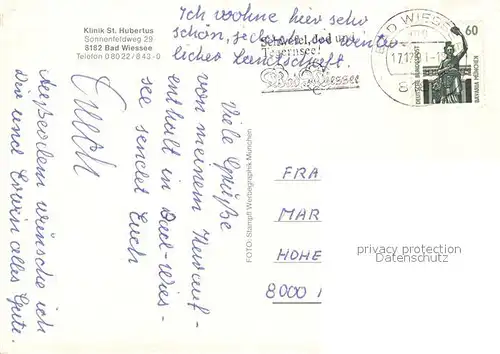 Klinik St. Hubertus
Sonnenfeldweg 29
8182 Bad Wiessee
Telefon 08022/843-0
Ich wohne hier sehr
schön, jedoch in winter-
licher Landschaft.
Schwefel, Jod und
Tegernsee!
Bad Wiessee
BAD WIESSEE
17.12.91-1
8
60
DEUTSCHE BUNDESPOST
BAVARIA MÜNCHEN
Viele Grüße
von meinem Kurauf-
enthalt in Bad-Wies-
see sendet Euch
Außerdem wünsche ich
Dir und Erwin alles Gute.
FOTO: Stampfl Werbegraphik München
FRA
MAR
HOHE
8000 1
privacy protection
Datenschutz